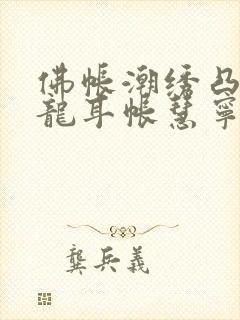 佛帐潮绣凸
龍耳帐慧寧
龔兵義